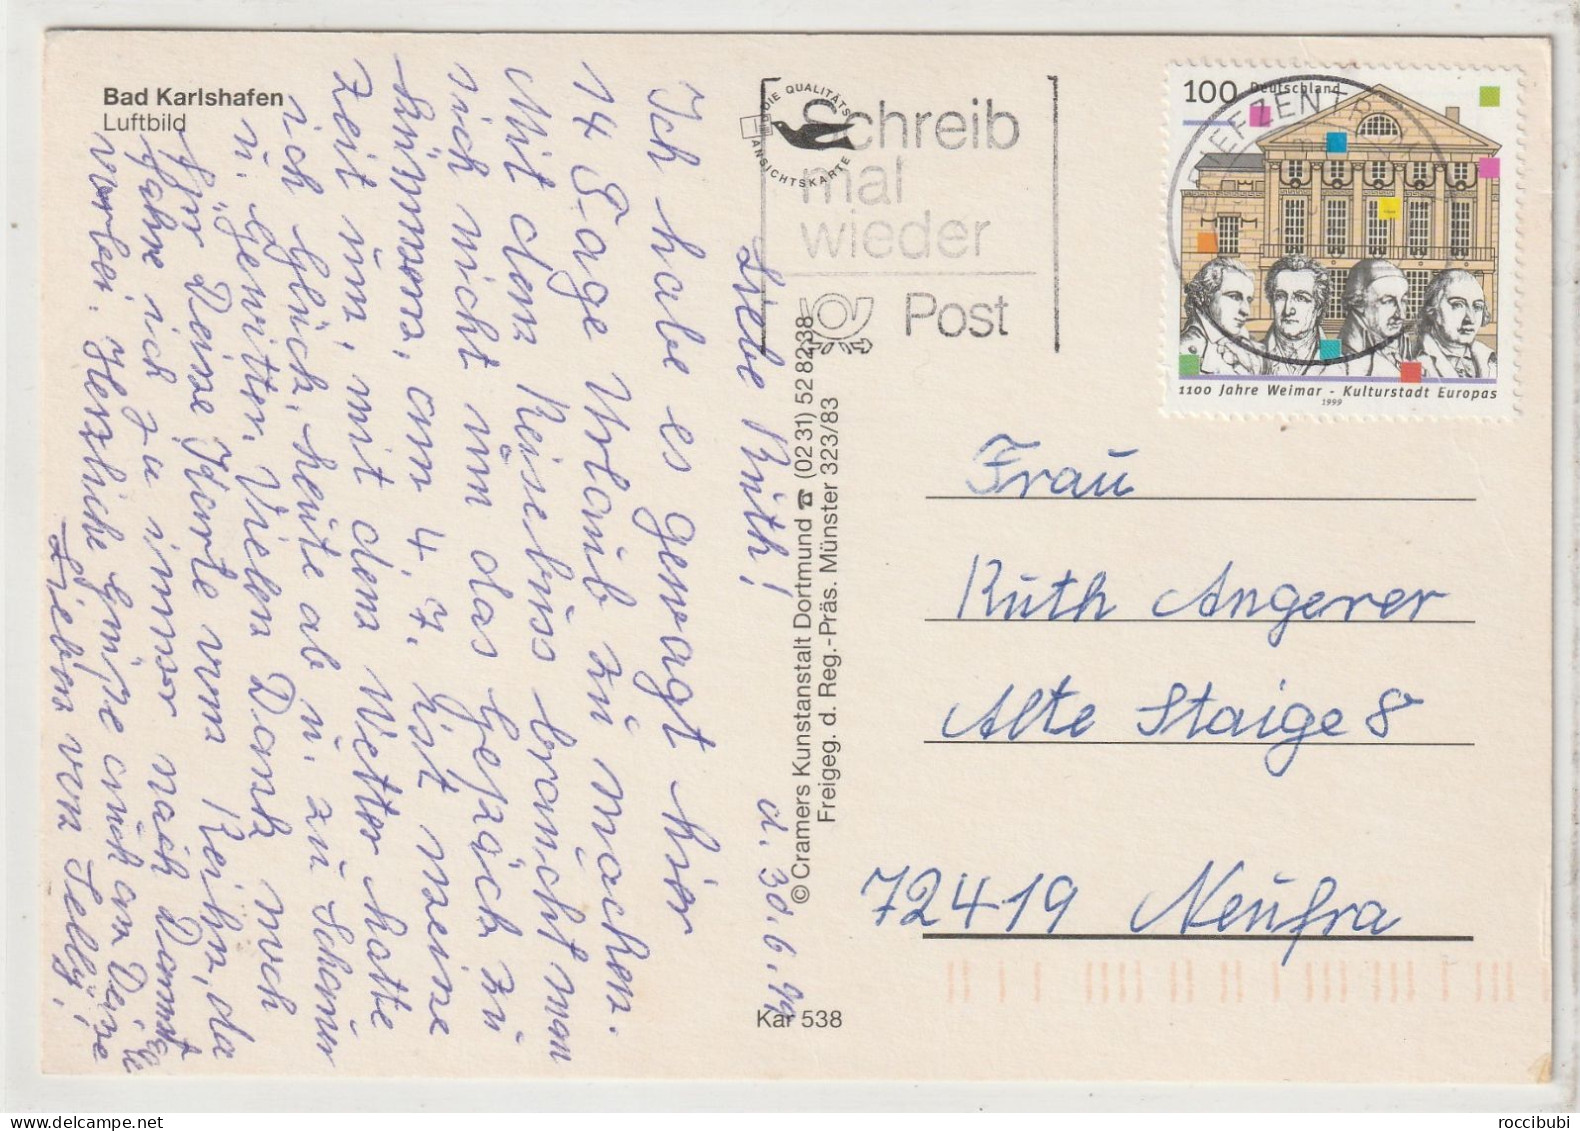 Bad Karlshafen
Luftbild
DIE QUALITÄTS
ANSICHTSKARTE
Schreib
mal
wieder
Post
100 Deutschland
BRIEFZENTRUM
1100 Jahre Weimar - Kulturstadt Europas
1999
Liebe Ruth!
d. 30.6.99
Ich habe es gewagt hier
14 Tage Urlaub zu machen.
Mit dem Reisebuss braucht man
sich nicht um das Gepäck zu
kümmern, am 4.7. ist meine
Zeit um, mit dem Wetter hatte
ich Glück, heute ab u. zu Schauer
u. Gewitter. Vielen Dank noch
für Deine Karte vom
fahre ich zu immer nach
vorbei. Herzliche Grüße auch an Deine
Lieben von Selly!
© Cramers Kunstanstalt Dortmund ☎ (0231) 528238
Freigeg. d. Reg.-Präs. Münster 323/83
Kar 538
Frau
Ruth Angerer
Alte Staige 8
72419 Neufra
roccibubi